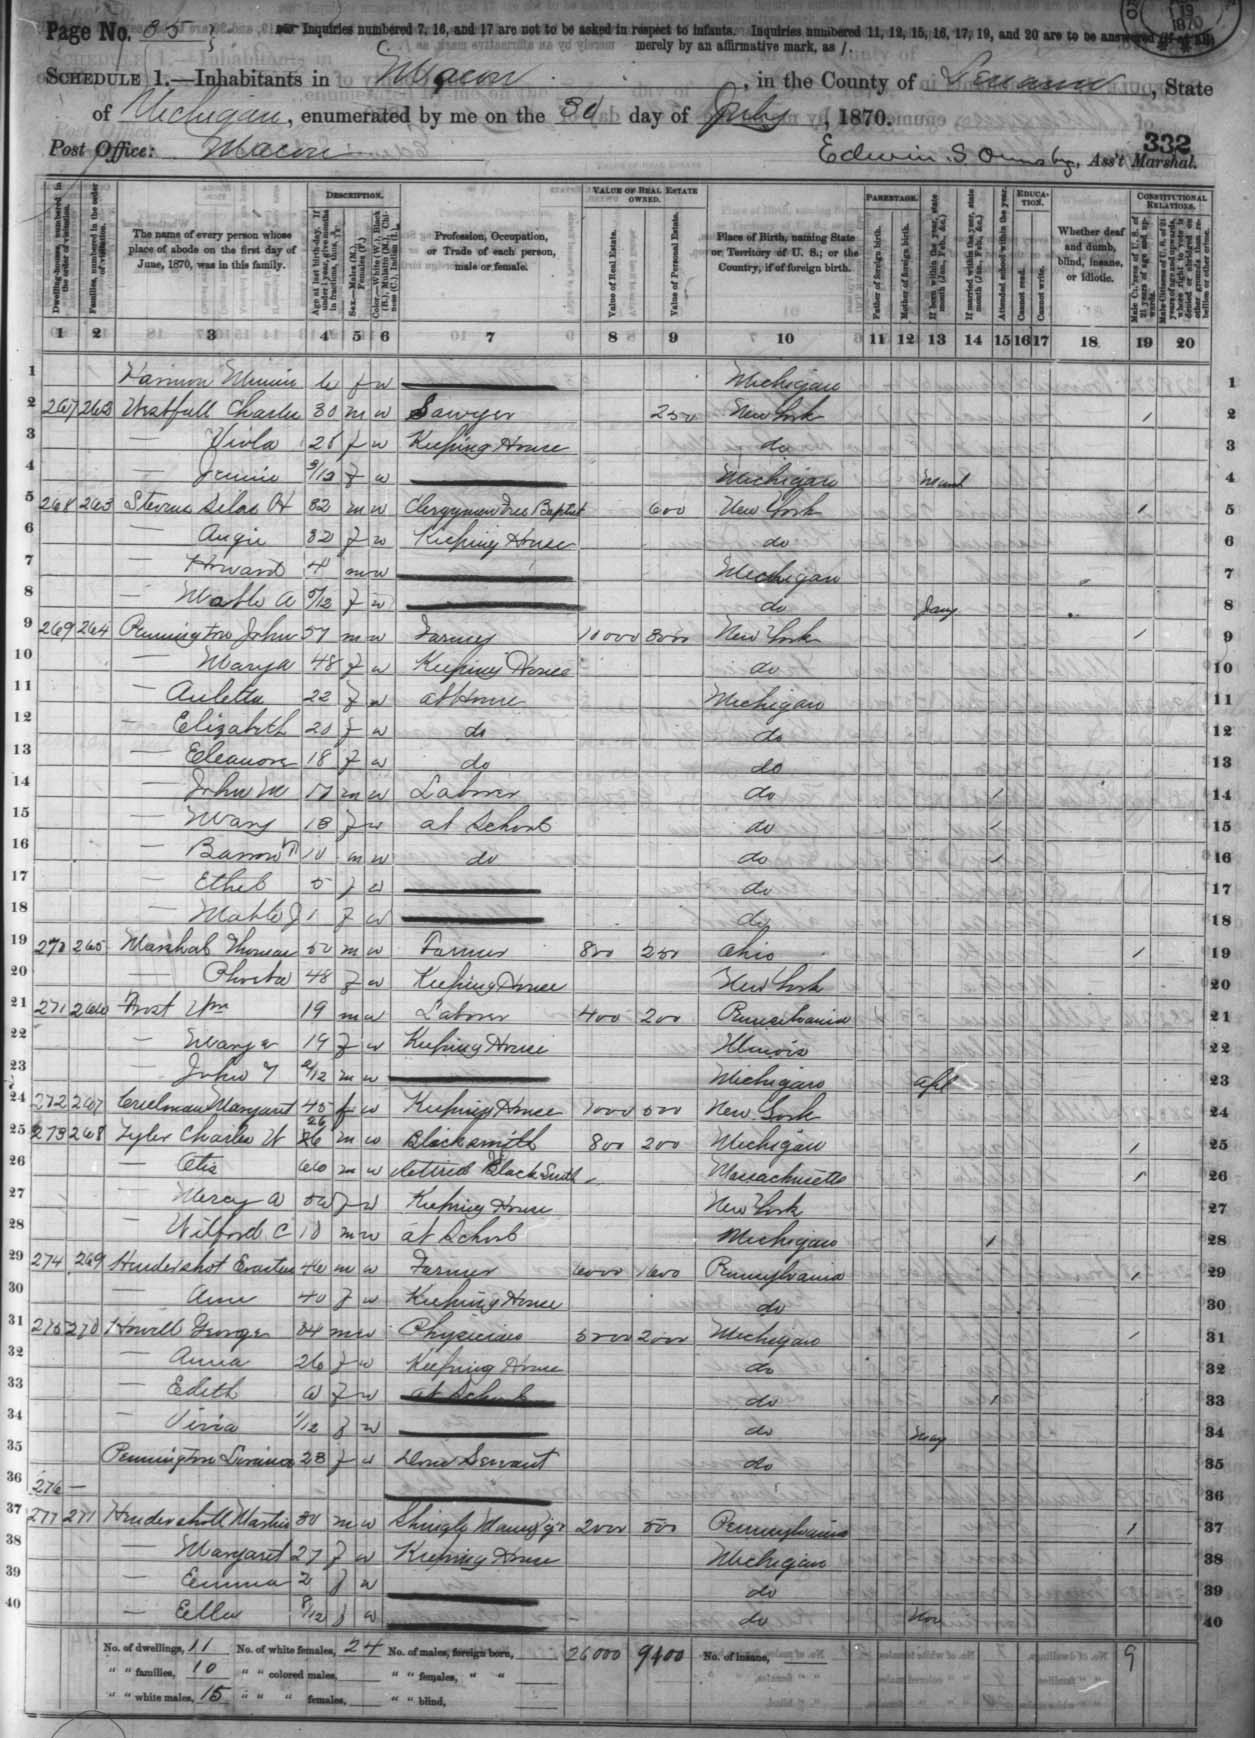 Page No. 35 Inquiries numbered 7, 16, and 17 are not to be asked in respect to infants. Inquiries numbered 11, 12, 15, 16, 17, 19, and 20 are to be answered (if at all)
merely by an affirmative mark, as /.
19
1870
SCHEDULE 1.—Inhabitants in Macon, in the County of Lenawee, State
of Michigan, enumerated by me on the 30 day of July, 1870.
332
Post Office: Macon Edwin S. Ormsby, Ass't Marshal.
Dwelling-houses, numbered in the order of visitation.
Families, numbered in the order of visitation.
The name of every person whose place of abode on the first day of June, 1870, was in this family.
DESCRIPTION.
Age at last birth-day. If under 1 year, give months in fractions, thus, 3/12.
Sex.—Males (M.), Females (F.)
Color.—White (W.), Black (B.), Mulatto (M.), Chinese (C.), Indian (I.)
Profession, Occupation, or Trade of each person, male or female.
VALUE OF REAL ESTATE OWNED.
Value of Real Estate.
Value of Personal Estate.
Place of Birth, naming State or Territory of U. S.; or the Country, if of foreign birth.
PARENTAGE.
Father of foreign birth.
Mother of foreign birth.
If born within the year, state month (Jan., Feb., &c.)
If married within the year, state month (Jan., Feb., &c.)
Attended school within the year.
EDUCATION.
Cannot read.
Cannot write.
Whether deaf and dumb, blind, insane, or idiotic.
CONSTITUTIONAL RELATIONS.
Male Citizens of U. S. of 21 years of age and upwards.
1 2 3 4 5 6 7 8 9 10 11 12 13 14 15 16 17 18 19 20
1 6 f w Michigan 1
2 267 262 Westfall Charles 30 m w Sawyer 250 New York / 2
3 — Viola 26 f w Keeping House do 3
4 — Jennie 3/12 f w Michigan 4
5 268 263 Stevens Silas H 32 m w Clergyman Free Baptist 600 New York / 5
6 — Angie 32 f w Keeping House do 6
7 — Howard 4 m w Michigan 7
8 — Mable A 5/12 f w do Jany 8
9 269 264 Pennington John 57 m w Farmer 10000 3000 New York / 9
10 — Mary A 48 f w Keeping House do 10
11 — 22 f w at Home Michigan 11
12 — Elizabeth 20 f w do do 12
13 — Eleanora 18 f w do do 13
14 — John M 17 m w Laborer do / 14
15 — Mary 13 f w at School do / 15
16 — 10 m w do do / 16
17 — Ethel 5 f w do 17
18 — Mable J 1 f w do 18
19 270 265 Marshal Thomas 50 m w Farmer 800 250 Ohio / 19
20 — Phoeba 48 f w Keeping House New York 20
21 271 266 Frost Wm 19 m w Laborer 400 200 Pennsylvania 21
22 — Mary 19 f w Keeping House Illinois 22
23 — John 2/12 m w Michigan Apl 23
24 272 267 Creelman Margaret 45 f w Keeping House 1000 500 New York 24
25 273 268 Tyler Charles W 26 m w Blacksmith 800 200 Michigan / 25
26 — Otis 66 m w Retired BlackSmith Massachusetts / 26
27 — Mercy A f w Keeping House New York 27
28 — Wilford C 10 m w at School Michigan / 28
29 274 269 Hendershot Erastus 46 m w Farmer 6000 1600 Pennsylvania / 29
30 — Ann 40 f w Keeping House do 30
31 275 270 Howell George 34 m w Physician 5000 2000 Michigan / 31
32 — Anna 26 f w Keeping House do 32
33 — Edith f w at School do / 33
34 — 1/12 f w do May 34
35 Pennington 23 f w Dom Servant do 35
36 276 — 36
37 277 271 Hendershott Martin 30 m w 2000 500 Pennsylvania / 37
38 — Margaret 27 f w Keeping House Michigan 38
39 — Emma 2 f w do 39
40 — Ella 8/12 f w do Nov 40
No. of dwellings, 11 No. of white females, 24 No. of males, foreign born, 26000 9400 No. of insane, 9
" " families, 10 " " colored males, " " females, " "
" " white males, 15 " " " females, " " blind,